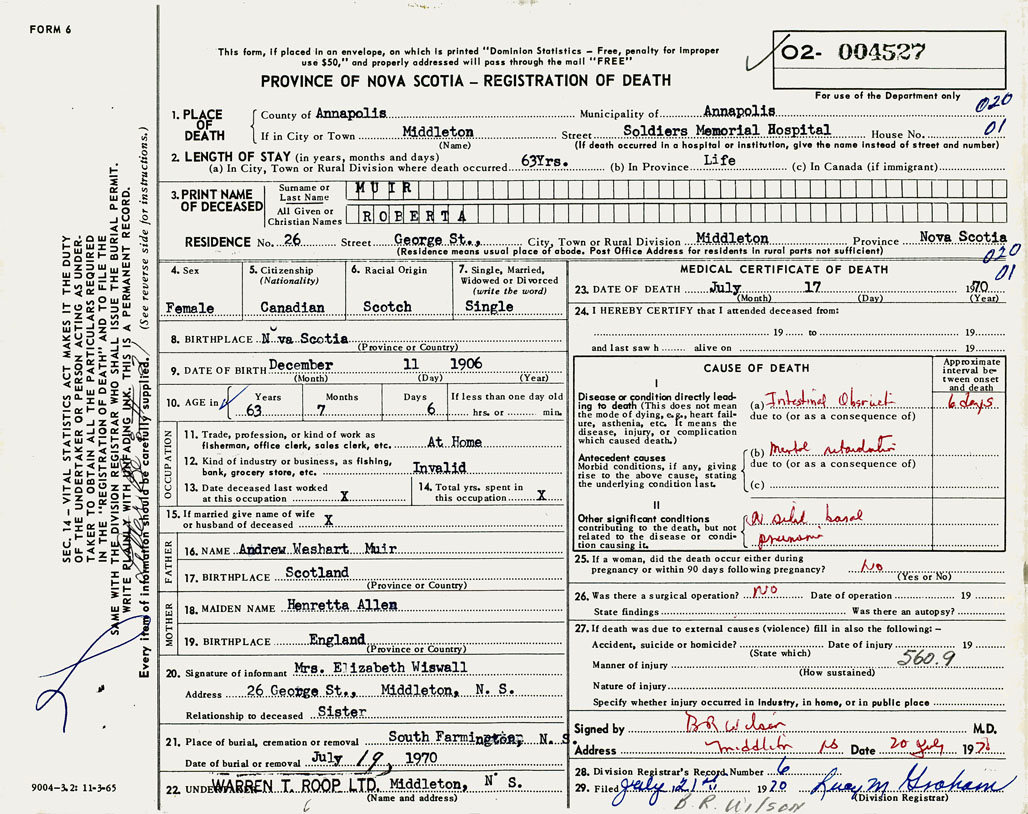 FORM 6
This form, if placed in an envelope, on which is printed "Dominion Statistics – Free, penalty for improper
use $50," and properly addressed will pass through the mail "FREE"
PROVINCE OF NOVA SCOTIA – REGISTRATION OF DEATH
02- 004527
For use of the Department only
020
01
SEC. 14 – VITAL STATISTICS ACT MAKES IT THE DUTY
OF THE UNDERTAKER OR PERSON ACTING AS UNDER-
TAKER TO OBTAIN ALL THE PARTICULARS REQUIRED
IN THE "REGISTRATION OF DEATH" AND TO FILE THE
SAME WITH THE DIVISION REGISTRAR WHO SHALL ISSUE THE BURIAL PERMIT.
WRITE PLAINLY WITH UNFADING INK. THIS IS A PERMANENT RECORD.
Every item of information should be carefully supplied. (See reverse side for instructions.)
1. PLACE OF DEATH
County of Annapolis Municipality of Annapolis
If in City or Town Middleton Street Soldiers Memorial Hospital House No.
(Name) (If death occurred in a hospital or institution, give the name instead of street and number)
2. LENGTH OF STAY (in years, months and days)
(a) In City, Town or Rural Division where death occurred 63Yrs. (b) In Province Life (c) In Canada (if immigrant)
3. PRINT NAME OF DECEASED
Surname or Last Name MUIR
All Given or Christian Names ROBERTA
RESIDENCE No. 26 Street George St., City, Town or Rural Division Middleton Province Nova Scotia
(Residence means usual place of abode. Post Office Address for residents in rural parts not sufficient)
020
01
4. Sex
Female
5. Citizenship
(Nationality)
Canadian
6. Racial Origin
Scotch
7. Single, Married,
Widowed or Divorced
(write the word)
Single
8. BIRTHPLACE Nova Scotia
(Province or Country)
9. DATE OF BIRTH December 11 1906
(Month) (Day) (Year)
10. AGE in
Years Months Days If less than one day old
63 7 6 hrs. or min.
OCCUPATION
11. Trade, profession, or kind of work as
fisherman, office clerk, sales clerk, etc. At Home
12. Kind of industry or business, as fishing,
bank, grocery store, etc. Invalid
13. Date deceased last worked
at this occupation X
14. Total yrs. spent in
this occupation X
15. If married give name of wife
or husband of deceased X
FATHER
16. NAME Andrew Weshart Muir
17. BIRTHPLACE Scotland
(Province or Country)
MOTHER
18. MAIDEN NAME Henretta Allen
19. BIRTHPLACE England
(Province or Country)
20. Signature of informant Mrs. Elizabeth Wiswall
Address 26 George St., Middleton, N. S.
Relationship to deceased Sister
21. Place of burial, cremation or removal South Farmington, N. S.
Date of burial or removal July 19, 1970
22. UNDERTAKER WARREN T. ROOP LTD. Middleton, N S.
(Name and address)
9004-3.2: 11-3-65
MEDICAL CERTIFICATE OF DEATH
23. DATE OF DEATH July 17 1970
(Month) (Day) (Year)
24. I HEREBY CERTIFY that I attended deceased from:
19 to 19
and last saw h alive on 19
CAUSE OF DEATH
Approximate interval between onset and death
I
Disease or condition directly lead-
ing to death (This does not
mean the mode of dying, e.g., heart fail-
ure, asthenia, etc. It means the
disease, injury, or complication
which caused death.)
(a) Intestinal Obstruct 6 days
due to (or as a consequence of)
Antecedent causes
Morbid conditions, if any, giving
rise to the above cause, stating
the underlying condition last.
(b) Mental retardation
due to (or as a consequence of)
(c)
II
Other significant conditions
contributing to the death, but not
related to the disease or condi-
tion causing it.
basal
25. If a woman, did the death occur either during
pregnancy or within 90 days following pregnancy? No
(Yes or No)
26. Was there a surgical operation? No Date of operation 19
State findings Was there an autopsy?
27. If death was due to external causes (violence) fill in also the following: –
Accident, suicide or homicide? Date of injury 19
(State which)
560.9
Manner of injury
(How sustained)
Nature of injury
Specify whether injury occurred in industry, in home, or in public place
Signed by B R Wilson M.D.
Address Middleton NS Date 20 July 1970
28. Division Registrar's Record Number 6
29. Filed July 21st 1970 Lucy M Graham
(Division Registrar)
B. R. Wilson